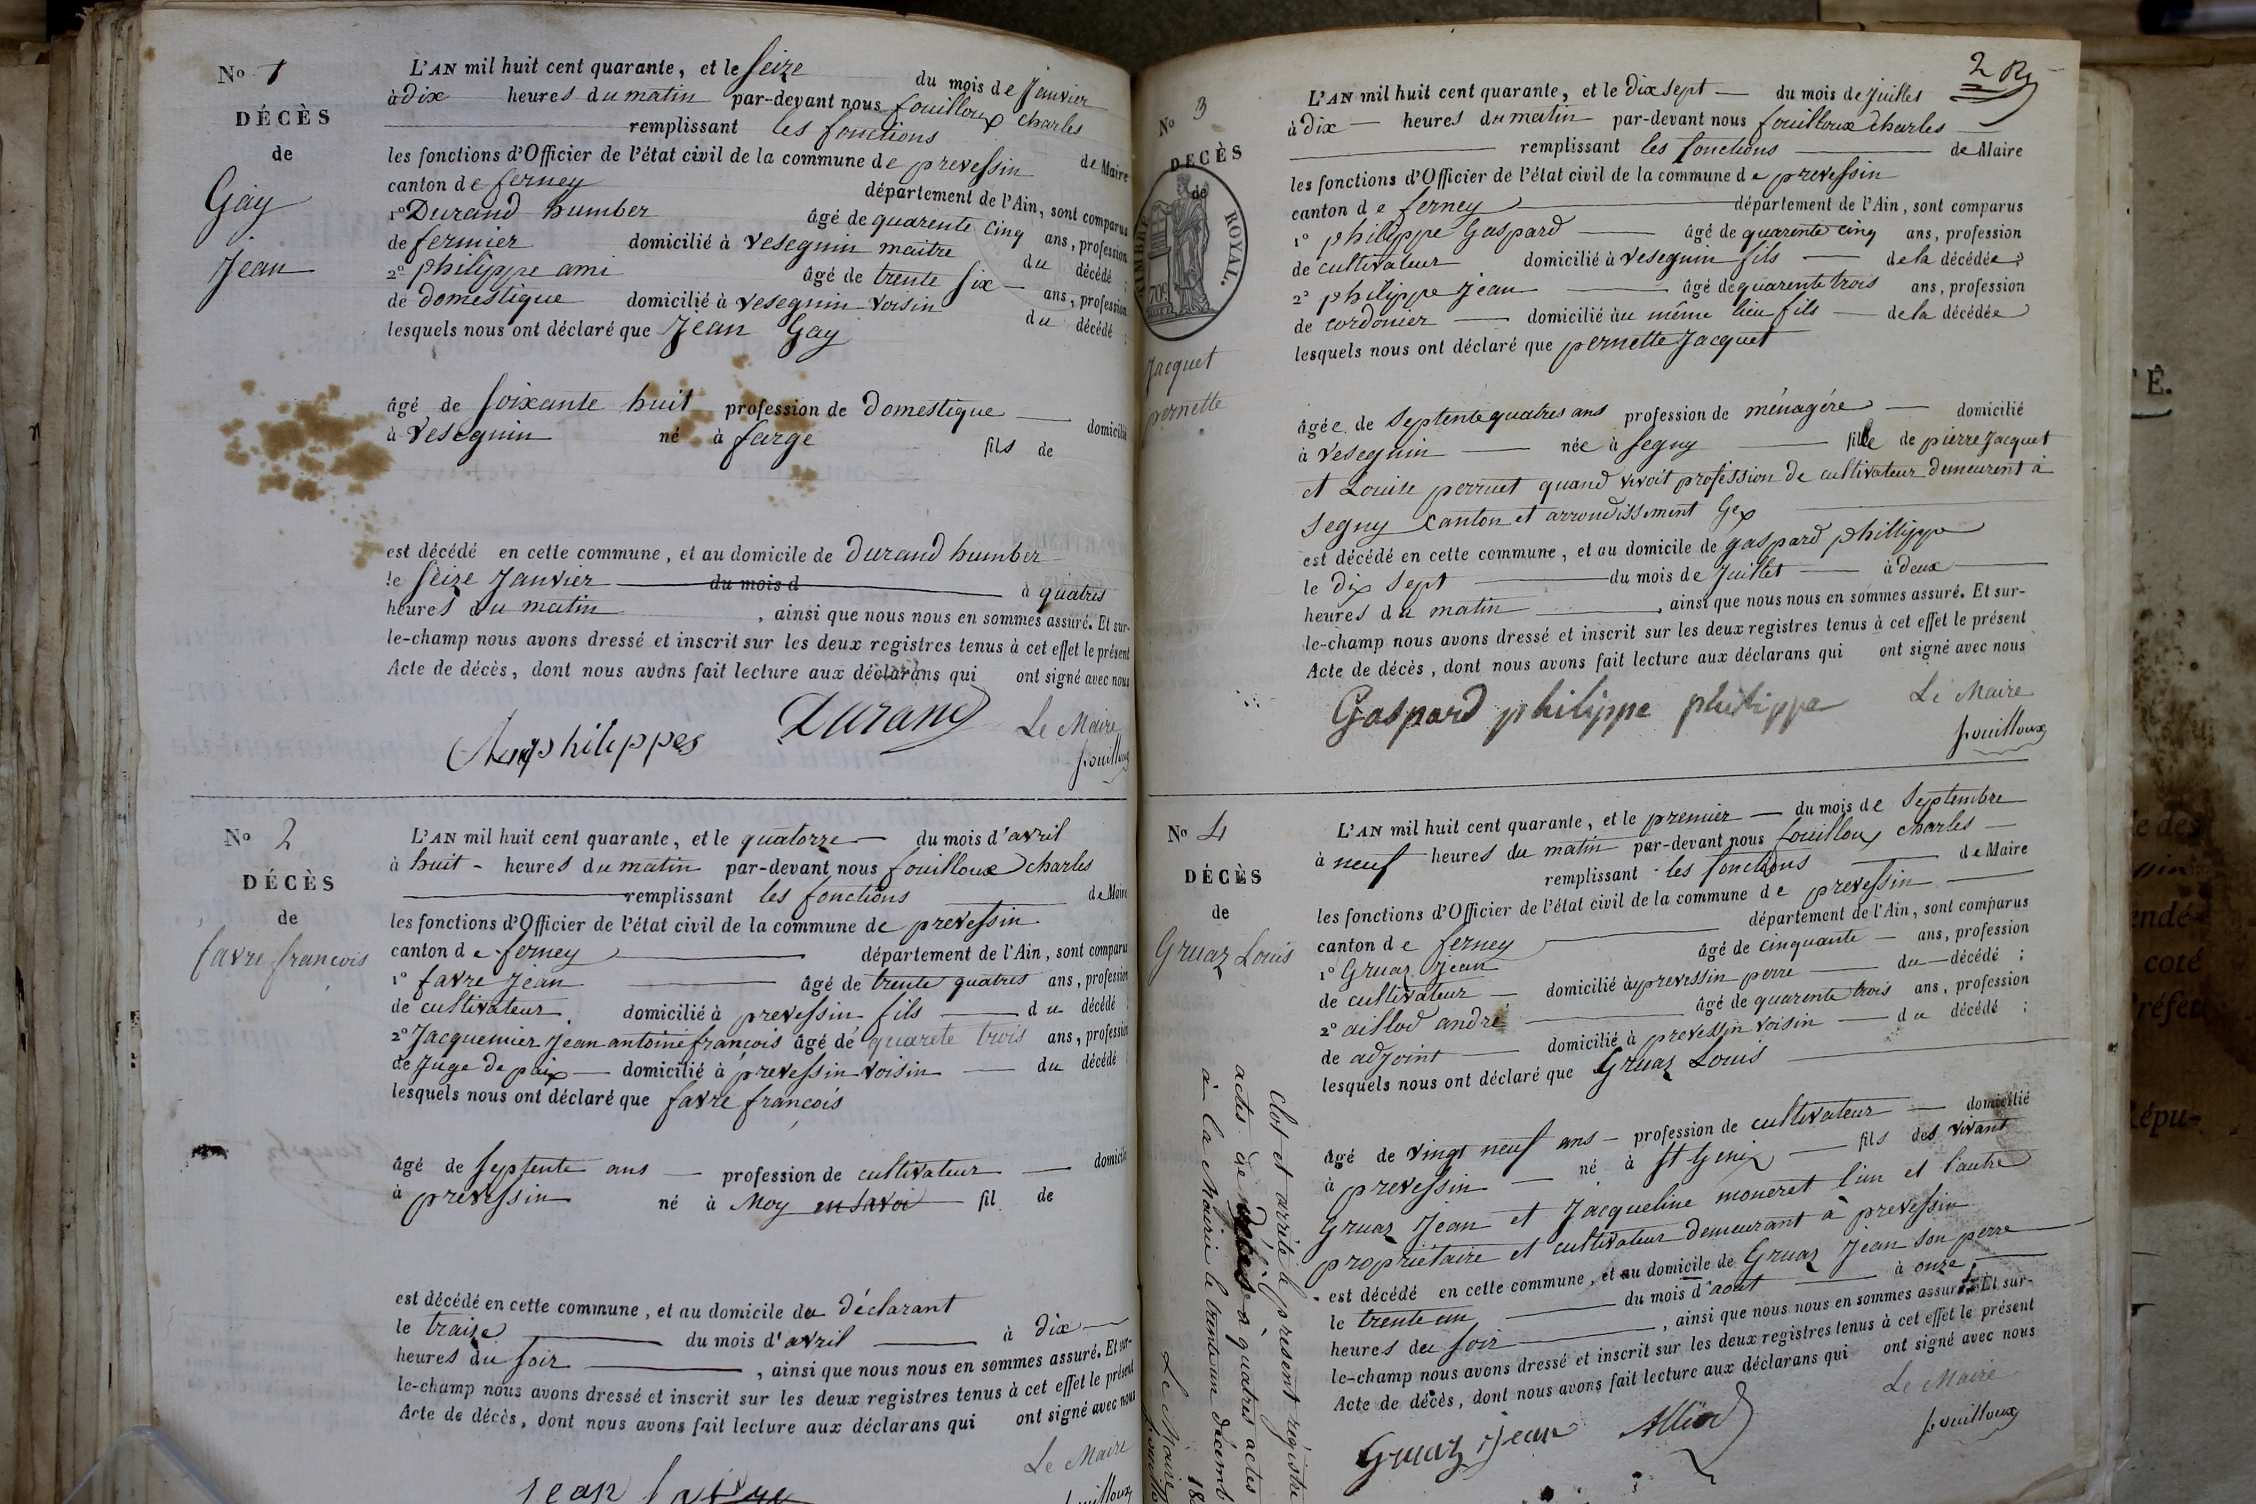 No 1
DÉCÈS
de
Gay
Jean
L'AN mil huit cent quarante, et le seize du mois de Janvier
à dix heures du matin par-devant nous fouilloux charles
remplissant les fonctions de Maire
les fonctions d'Officier de l'état civil de la commune de prevessin
canton de ferney département de l'Ain, sont comparus
1o Durand humber âgé de quarente cinq ans, profession
de fermier domicilié à Vesegnin maitre du décédé ;
2o philippe ami âgé de trente six ans, profession
de domestique domicilié à Vesegnin voisin du décédé ;
lesquels nous ont déclaré que Jean Gay
âgé de soixante huit profession de Domestique domicilié
à Vesegnin né à farge fils de
est décédé en cette commune, et au domicile de Durand humber
le seize Janvier du mois d à quatres
heures du matin, ainsi que nous nous en sommes assuré. Et sur-
le-champ nous avons dressé et inscrit sur les deux registres tenus à cet effet le présent
Acte de décès, dont nous avons fait lecture aux déclarans qui ont signé avec nous
Durand Le Maire
philippes fouilloux
No 2
DÉCÈS
de
favre francois
L'AN mil huit cent quarante, et le quatorze du mois d'avril
à huit heures du matin par-devant nous fouilloux charles
remplissant les fonctions de Maire
les fonctions d'Officier de l'état civil de la commune de prevessin
canton de ferney département de l'Ain, sont comparu
1o favre Jean âgé de trente quatres ans, profession
de cultivateur domicilié à prevessin fils du décédé ;
2o Jacquemier Jean antoine françois âgé de quarete trois ans, profession
de Juge de paix domicilié à prevessin voisin du décédé ;
lesquels nous ont déclaré que favre francois
âgé de septente ans profession de cultivateur domicilié
à prevessin né à Moy en savoi fil de
est décédé en cette commune, et au domicile du déclarant
le traise du mois d'avril à dix
heures du soir, ainsi que nous nous en sommes assuré. Et sur-
le-champ nous avons dressé et inscrit sur les deux registres tenus à cet effet le présent
Acte de décès, dont nous avons fait lecture aux déclarans qui ont signé avec nous
Le Maire
Jean favre fouilloux
2
No 3
DÉCÈS
de
TIMBRE ROYAL.
70c
Jacquet
pernette
L'AN mil huit cent quarante, et le dix sept du mois de Juilles
à dix heures du matin par-devant nous fouilloux charles
remplissant les fonctions de Maire
les fonctions d'Officier de l'état civil de la commune de prevessin
canton de ferney département de l'Ain, sont comparus
1o philippe Gaspard âgé de quarente cinq ans, profession
de cultivateur domicilié à Vesegnin fils de la décédée ;
2o philippe Jean âgé de quarente trois ans, profession
de cordonier domicilié au même lieu fils de la décédée
lesquels nous ont déclaré que pernette Jacquet
âgée de septente quatres ans profession de ménagére domicilié
à Vesegnin née à segny fille de pierre Jacquet
et Louise perruet quand vivoit profession de cultivateur demeurent à
segny canton et arrondissement Gex
est décédé en cette commune, et au domicile de gaspard phillippe
le dix sept du mois de Juillet à deux
heures du matin, ainsi que nous nous en sommes assuré. Et sur-
le-champ nous avons dressé et inscrit sur les deux registres tenus à cet effet le présent
Acte de décès, dont nous avons fait lecture aux déclarans qui ont signé avec nous
Gaspard philippe philippe Le Maire
fouilloux
No 4
DÉCÈS
de
Gruaz Louis
L'AN mil huit cent quarante, et le premier du mois de septembre
à neuf heures du matin par-devant nous fouilloux charles
remplissant les fonctions de Maire
les fonctions d'Officier de l'état civil de la commune de prevessin
canton de ferney département de l'Ain, sont comparus
1o Gruaz Jean âgé de cinquante ans, profession
de cultivateur domicilié à prevessin perre du décédé ;
2o aillod andré âgé de quarente trois ans, profession
de adjoint domicilié à prevessin voisin du décédé ;
lesquels nous ont déclaré que Gruaz Louis
âgé de vingt neuf ans profession de cultivateur domicilié
à prevessin né à St Genix fils des vivant
Gruaz Jean et Jacqueline moneret l'un et l'autre
propriétaire et cultivateur demeurant à prevessin
est décédé en cette commune, et au domicile de Gruaz Jean son perre
le trente un du mois d'aout à onze
heures du soir, ainsi que nous nous en sommes assuré. Et sur-
le-champ nous avons dressé et inscrit sur les deux registres tenus à cet effet le présent
Acte de décès, dont nous avons fait lecture aux déclarans qui ont signé avec nous
Le Maire
Gruaz Jean fouilloux
Clot et arrêté le present régistre
actes de décès à quatres actes
à la Mairie le trente un décemb
18
Le Maire
fouillo
É.
e des
endé-
coté
réfet
Répu-